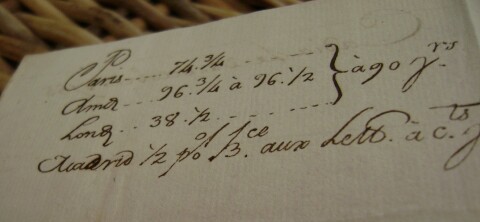 Paris .... 74.3/4 ........
Amsr ... 96.3/4 à 96.1/2 } à 90 jrs.
Londr .. 38.1/2 ........
Madrid 1/2 p% Bce. aux Lett. à c.ts j